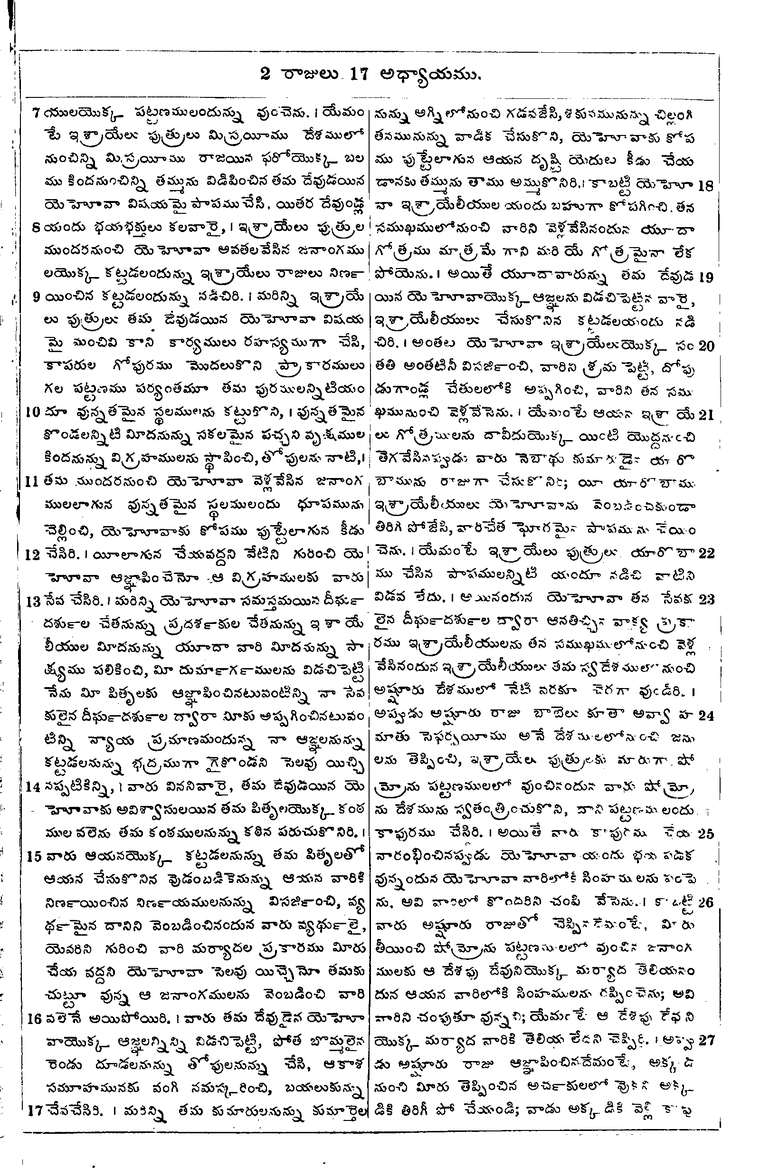 2 రాజులు 17 అధ్యాయము.
7 యులయొక్క పట్టణములందున్ను వుంచెను. । యేమం
టే ఇశ్రాయేలు పుత్రులు మిస్రయీము దేశములో
నుంచిన్ని మిస్రయీము రాజయిన ఫరోయొక్క బల
ము కిందనుంచిన్ని తమ్మును విడిపించిన తమ దేవుడయిన
యెహోవా విషయమై పాపముచేసి, యితర దేవుండ్ల
8 యందు భయభక్తులు కలవారై, । ఇశ్రాయేలు పుత్రుల
ముందరనుంచి యెహోవా అవతలవేసిన జనాంగము
లయొక్క కట్టడలందున్ను ఇశ్రాయేలు రాజులు నిర్ణ
9 యించిన కట్టడలందున్ను నడిచిరి. । మరిన్ని ఇశ్రాయే
లు పుత్రులు తమ దేవుడయిన యెహోవా విషయ
మై మంచివి కాని కార్యములు రహస్యముగా చేసి,
కాపరుల గోపురము మొదలుకొని ప్రాకారములు
గల పట్టణము పర్యంతమూ తమ పురములన్నిటియం
10 దూ వున్నతమైన స్థలములను కట్టుకొని, । వున్నతమైన
కొండలన్నిటి మీదనున్ను సకలమైన పచ్చని వృక్షముల
కిందనున్ను విగ్రహములను స్థాపించి, తోపులను నాటి, ।
11 తమ ముందరనుంచి యెహోవా వెళ్లవేసిన జనాంగ
ములలాగున వున్నతమైన స్థలములందు ధూపమును
చెల్లించి, యెహోవాకు కోపము పుట్టేలాగున కీడు
12 చేసిరి. । యీలాగున చేయవద్దని వేటిని గురించి యె
హోవా ఆజ్ఞాపించెనో ఆ విగ్రహములకు వారు
13 సేవ చేసిరి. । మరిన్ని యెహోవా సమస్తమయిన దీర్ఘ
దర్శుల చేతనున్ను ప్రదర్శకుల చేతనున్ను ఇశ్రాయే
లీయుల మీదనున్ను యూదా వారి మీదనున్ను సా
క్ష్యము పలికించి, మీ దుర్మార్గములను విడచిపెట్టి
నేను మీ పితృలకు ఆజ్ఞాపించినటువంటిన్ని నా సేవ
కులైన దీర్ఘదర్శుల ద్వారా మీకు అప్పగించినటువం
టిన్ని న్యాయ ప్రమాణమందున్న నా ఆజ్ఞలనున్ను
కట్టడలనున్ను భద్రముగా గైకొండని సెలవు యిచ్చి
14 నప్పటికిన్ని, । వారు విననివారై, తమ దేవుడయిన యె
హోవాకు అవిశ్వాసులయిన తమ పితృలయొక్క కంఠ
ముల వలెను తమ కంఠములనున్ను కఠిన పరుచుకొనిరి. ।
15 వారు ఆయనయొక్క కట్టడలనున్ను తమ పితృలతో
ఆయన చేసుకొనిన వొడంబడికెనున్ను ఆయన వారికి
నిర్ణయించిన నిర్ణయములనున్ను విసర్జించి, వ్య
ర్థమైన దానిని వెంబడించినందున వారు వ్యర్థులై,
యెవరిని గురించి వారి మర్యాదల ప్రకారము మీరు
చేయ వద్దని యెహోవా సెలవు యిచ్చెనో తమకు
చుట్టూ వున్న ఆ జనాంగములను వెంబడించి వారి
16 వలెనే అయిపోయిరి. । వారు తమ దేవుడైన యెహో
వాయొక్క ఆజ్ఞలన్నిన్ని విడచిపెట్టి, పోత బొమ్మలైన
రెండు దూడలనున్ను తోపులనున్ను చేసి, ఆకాశ
సమూహమునకు వంగి నమస్కరించి, బయలుకున్ను
17 సేవచేసిరి. । మరిన్ని తమ కుమారులనున్ను కుమార్తెల
నున్ను అగ్నిలోనుంచి గడనజేసి, శకునమునున్ను చిల్లంగి
తనమునున్ను వాడిక చేసుకొని, యెహోవాకు కోప
ము పుట్టేలాగున ఆయన దృష్టి యెదుట కీడు చేయ
డానకు తమ్మును తాము అమ్ముకొనిరి. । కాబట్టి యెహో 18
వా ఇశ్రాయేలీయుల యందు బహుగా కోపగించి, తన
సముఖములోనుంచి వారిని వెళ్లవేసినందున యూదా
గోత్రము మాత్రమే గాని మరి యే గోత్రమైనా లేక
పోయెను. । అయితే యూదావారున్ను తమ దేవుడ 19
యిన యెహోవాయొక్క ఆజ్ఞలను విడచిపెట్టిన వారై,
ఇశ్రాయేలీయులు చేసుకొనిన కట్టడలయందు నడి
చిరి. । అంతట యెహోవా ఇశ్రాయేలుయొక్క సం 20
తతి అంతటినీ విసర్జించి, వారిని శ్రమ పెట్టి, దోపు
డుగాండ్ల చేతులలోకి అప్పగించి, వారిని తన సము
ఖమునుంచి వెళ్లవేసెను. । యేమంటే ఆయన ఇశ్రాయే 21
లు గోత్రములను దావీదుయొక్క యింటి యొద్దనుంచి
తెగవేసినప్పుడు వారు నెబాథు కుమారుడైన యారొ
బామును రాజుగా చేసుకొనిరి; యీ యారొబాము
ఇశ్రాయేలీయులు యెహోవాను వెంబడించకుండా
తిరిగి పోజేసి, వారిచేత ఘోరమైన పాపమును చేయిం
చెను. । యేమంటే ఇశ్రాయేలు పుత్రులు యారొబా 22
ము చేసిన పాపములన్నిటి యందూ నడిచి వాటిని
విడవ లేదు. । అయినందున యెహోవా తన సేవకు 23
లైన దీర్ఘదర్శుల ద్వారా ఆనతిచ్చిన వాక్య ప్రకా
రము ఇశ్రాయేలీయులను తన సముఖములోనుంచి వెళ్ల
వేసినందున ఇశ్రాయేలీయులు తమ స్వదేశములోనుంచి
అష్షూరు దేశములో నేటి వరకూ చెరగా వుండిరి. ।
అప్పుడు అష్షూరు రాజు బాబేలు కూతా అవ్వా హ 24
మాతు సెఫర్వయీము అనే దేశములలోనుంచి జను
లను తెప్పించి, ఇశ్రాయేలు పుత్రులకు మారుగా షో
మ్రోను పట్టణములలో వుంచినందున వారు షోమ్రో
ను దేశమును స్వతంత్రించుకొని, దాని పట్టణములందు
కాపురము చేసిరి. । అయితే వారు కాపురము చేయ 25
నారంభించినప్పుడు యెహోవా యందు భయ పడక
వున్నందున యెహోవా వారిలోకి సింహములను పంపె
ను. అవి వారిలో కొందరిని చంపి వేసెను. । కాబట్టి 26
వారు అష్షూరు రాజుతో చెప్పినదేమంటే, మీరు
తీయించి షోమ్రోను పట్టణములలో వుంచిన జనాంగ
ములకు ఆ దేశపు దేవునియొక్క మర్యాద తెలియనం
దున ఆయన వారిలోకి సింహములను రప్పించెను; అవి
వారిని చంపుతూ వున్నవి; యేమంటే ఆ దేశపు దేవుని
యొక్క మర్యాద వారికి తెలియ లేదని చెప్పిరి. । అప్పు 27
డు అష్షూరు రాజు ఆజ్ఞాపించినదేమంటే, అక్కడ
నుంచి మీరు తెప్పించిన అర్చకులలో వొకని అక్క
డికి తిరిగీ పో చేయండి; వాడు అక్కడికి వెళ్లి కాపు